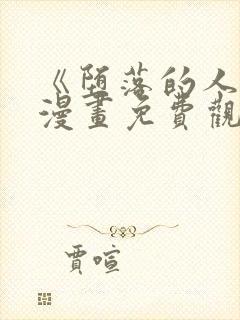 《堕落的人
漫畫免費觀
賈喧